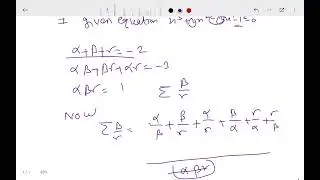 1 given equation x³+2x²-3x-1=0
α+β+r=-2
αβ+βr+αr=-3
αβr = 1 Σ β/r
Now
Σ β/r = α/β + β/r + α/r + β/α + r/α + r/β
αβr